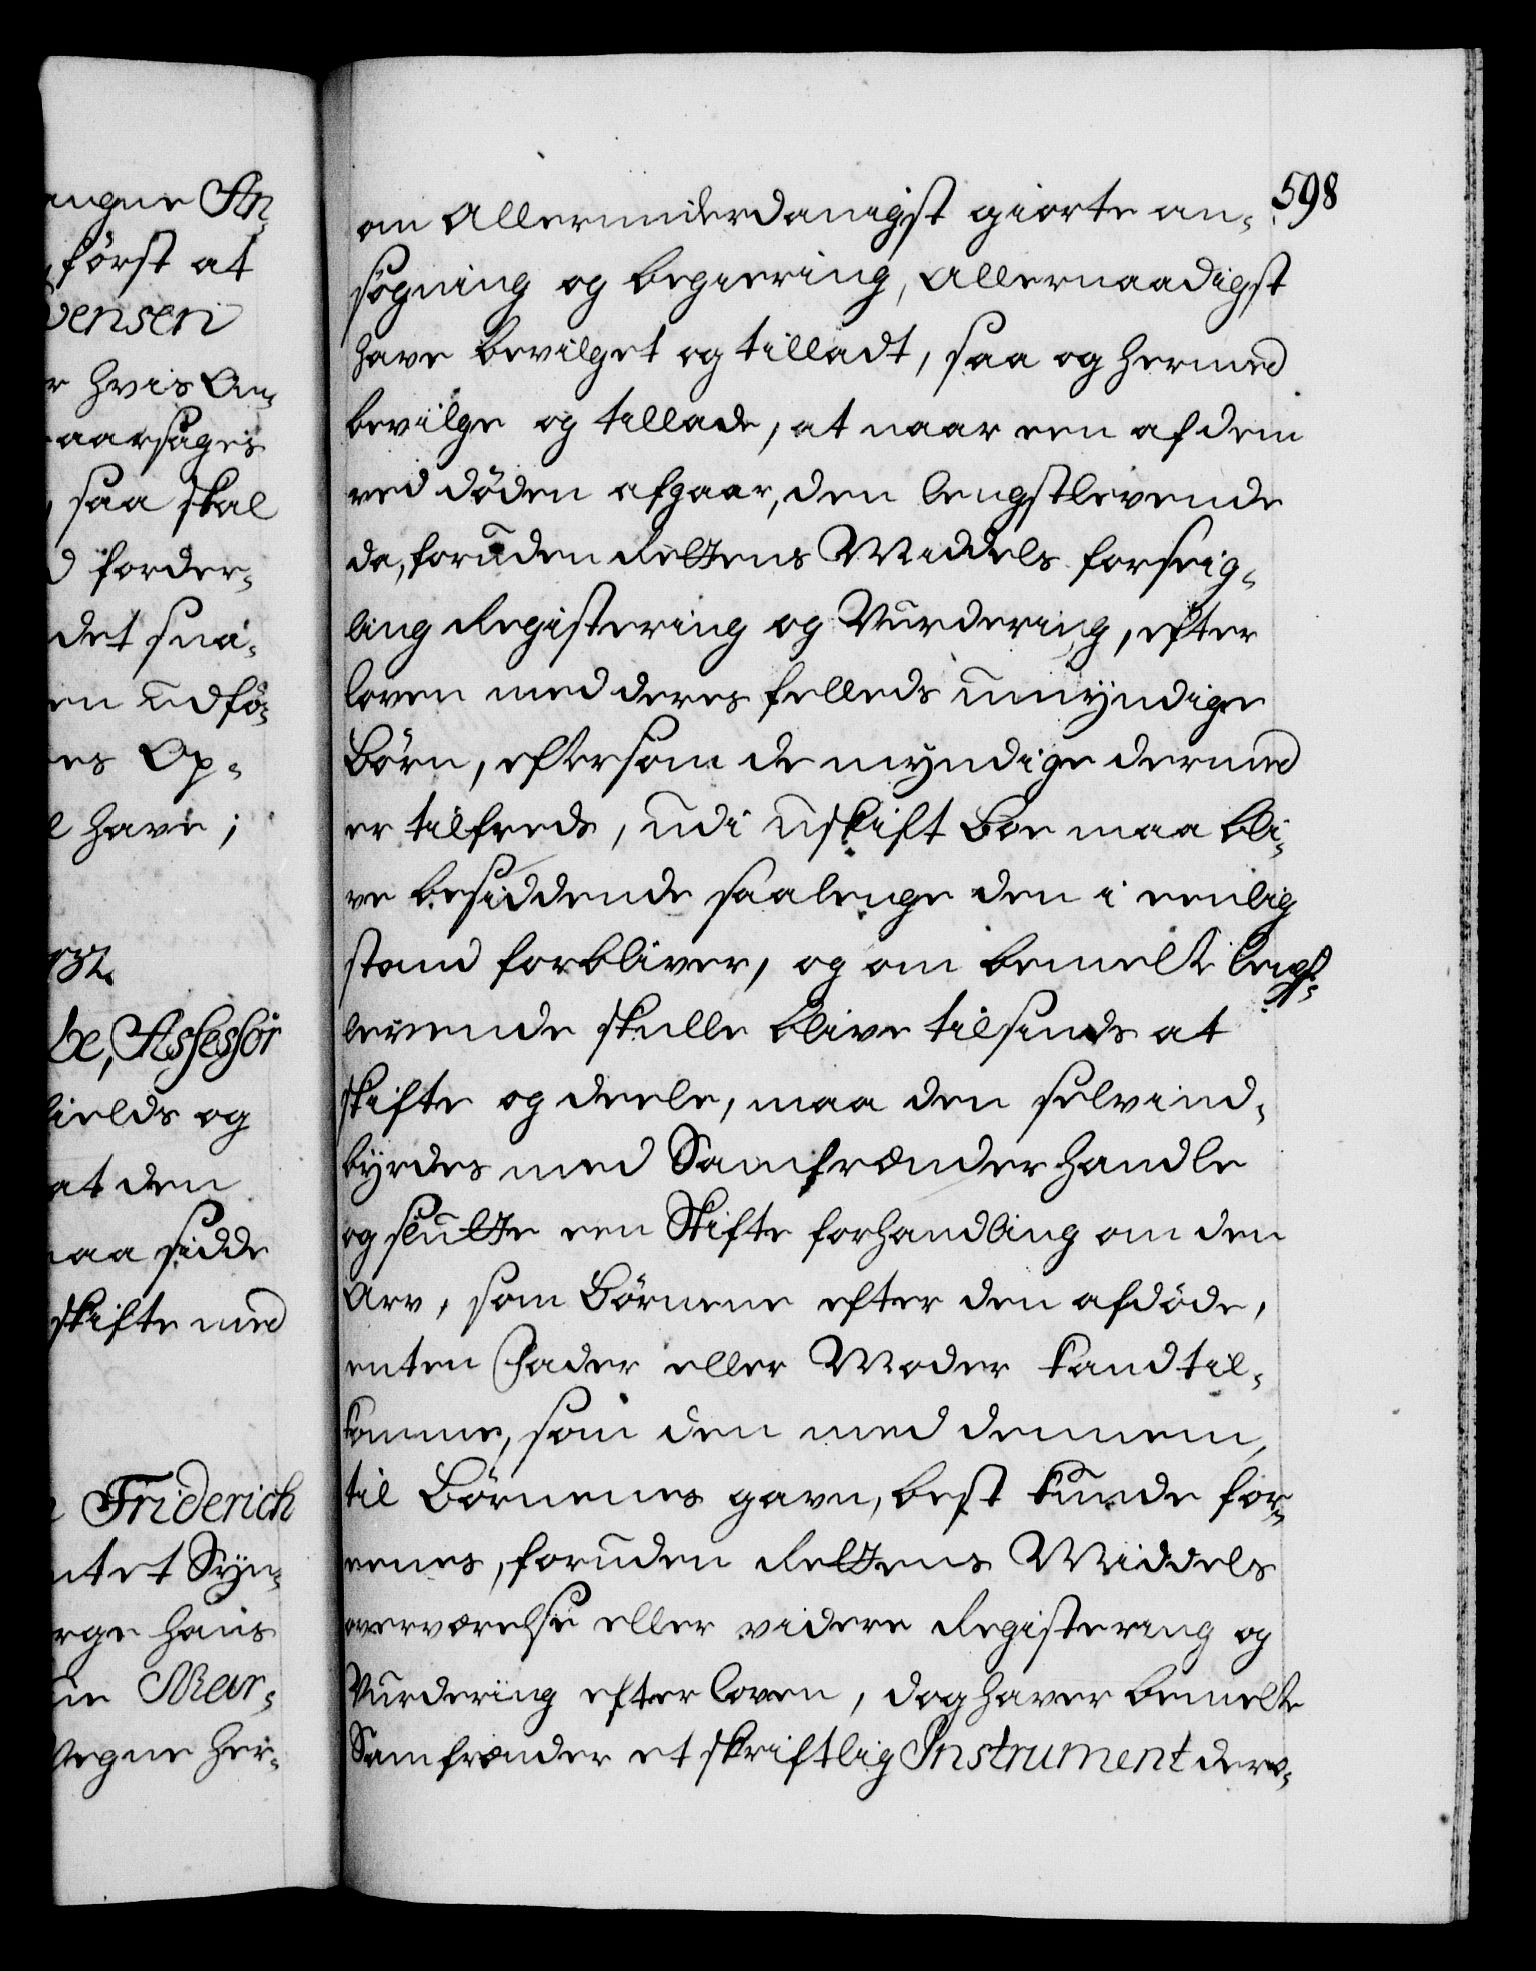 angne An-
først at
vensen
r hvis An-
aarsages
, saa skal
d forder-
det sna-
en udfø-
es Op-
l have;
132.
be, Assessor
fields og
at den
naa sidde
skifte med
e Friderich
ntet Syn-
rge hans
ne Mar-
Vegne her-
598
om allerunderdanigst giorte an-
søgning og begiering, allernaadigst
have bevilget og tilladt, saa og hermed
bevilge og tillade, at naar een af dem
ved døden afgaar, den lengstlevende
da, foruden Rettens Middels forseig-
ling Registering og Vurdering, efter
loven med deres felleds umyndige
Børn, eftersom de myndige dermed
er tilfreds, udi uskift Boe maa bli-
ve besiddende saalenge den i eenlig
stand forbliver, og om bemelte lengst-
levende skulle blive tilsinds at
skifte og deele, maa den selv ind-
byrdes med Samfrænder handle
og slutte een Skifte forhandling om den
Arv, som Børnene efter den afdøde,
enten Fader eller Moder kand til-
komme, som den med dennem,
til Børnenes gavn, best kunde for-
eenes, foruden Rettens Middels
overværelse eller videre Registering og
Vurdering efter loven, dog haver bemelte
Samfrænder et skriftlig Instrument dero-